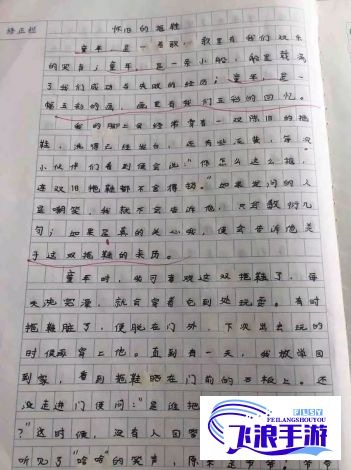 修正栏
怀旧的拖鞋
童年,是一首歌,歌里有我们欢乐
的笑声;童年,是一条小船,船里载满
了我们成功与失败的经历;童年,是一
幅五彩的画,画里有我们五彩的回忆。
我的脚上会经常穿着一双陈旧的拖
鞋,洗得已经发白,还有些泛黄,每次
小伙伴们看到便会说:“你怎么这么抠,
连双旧拖鞋都不舍得扔。”如果发问的人
是嘲笑,我就不会告诉他,只是敷衍几
句;如果是真的关心我,便会告诉他关
于这双拖鞋的来历。
童年时,我可喜欢这双拖鞋了,每
天洗完澡,就会穿着它到处玩耍。有时
拖鞋脏了,便脱在门外,下次出去玩的
时候再穿上他。直到有一天,我放学回
到家,看到拖鞋晒在门前的石板上。还
没走进门便问:“是谁把
?”这时候,没有人回答
听见了“哈哈”的笑声
飞浪手游